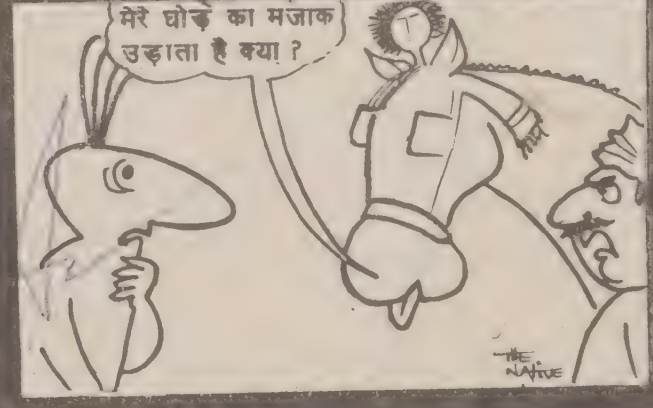 मेरे घोड़े का मजाक
उड़ाता है क्या ?
THE
NATIVE